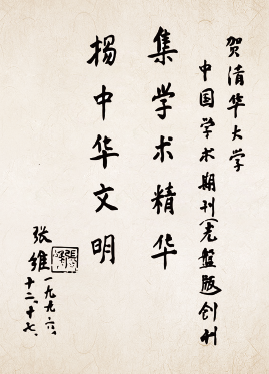 贺清华大学
中国学术期刊(光盘版)创刊
集学术精华
揚中华文明
张维
一九九六.
十二.十七.